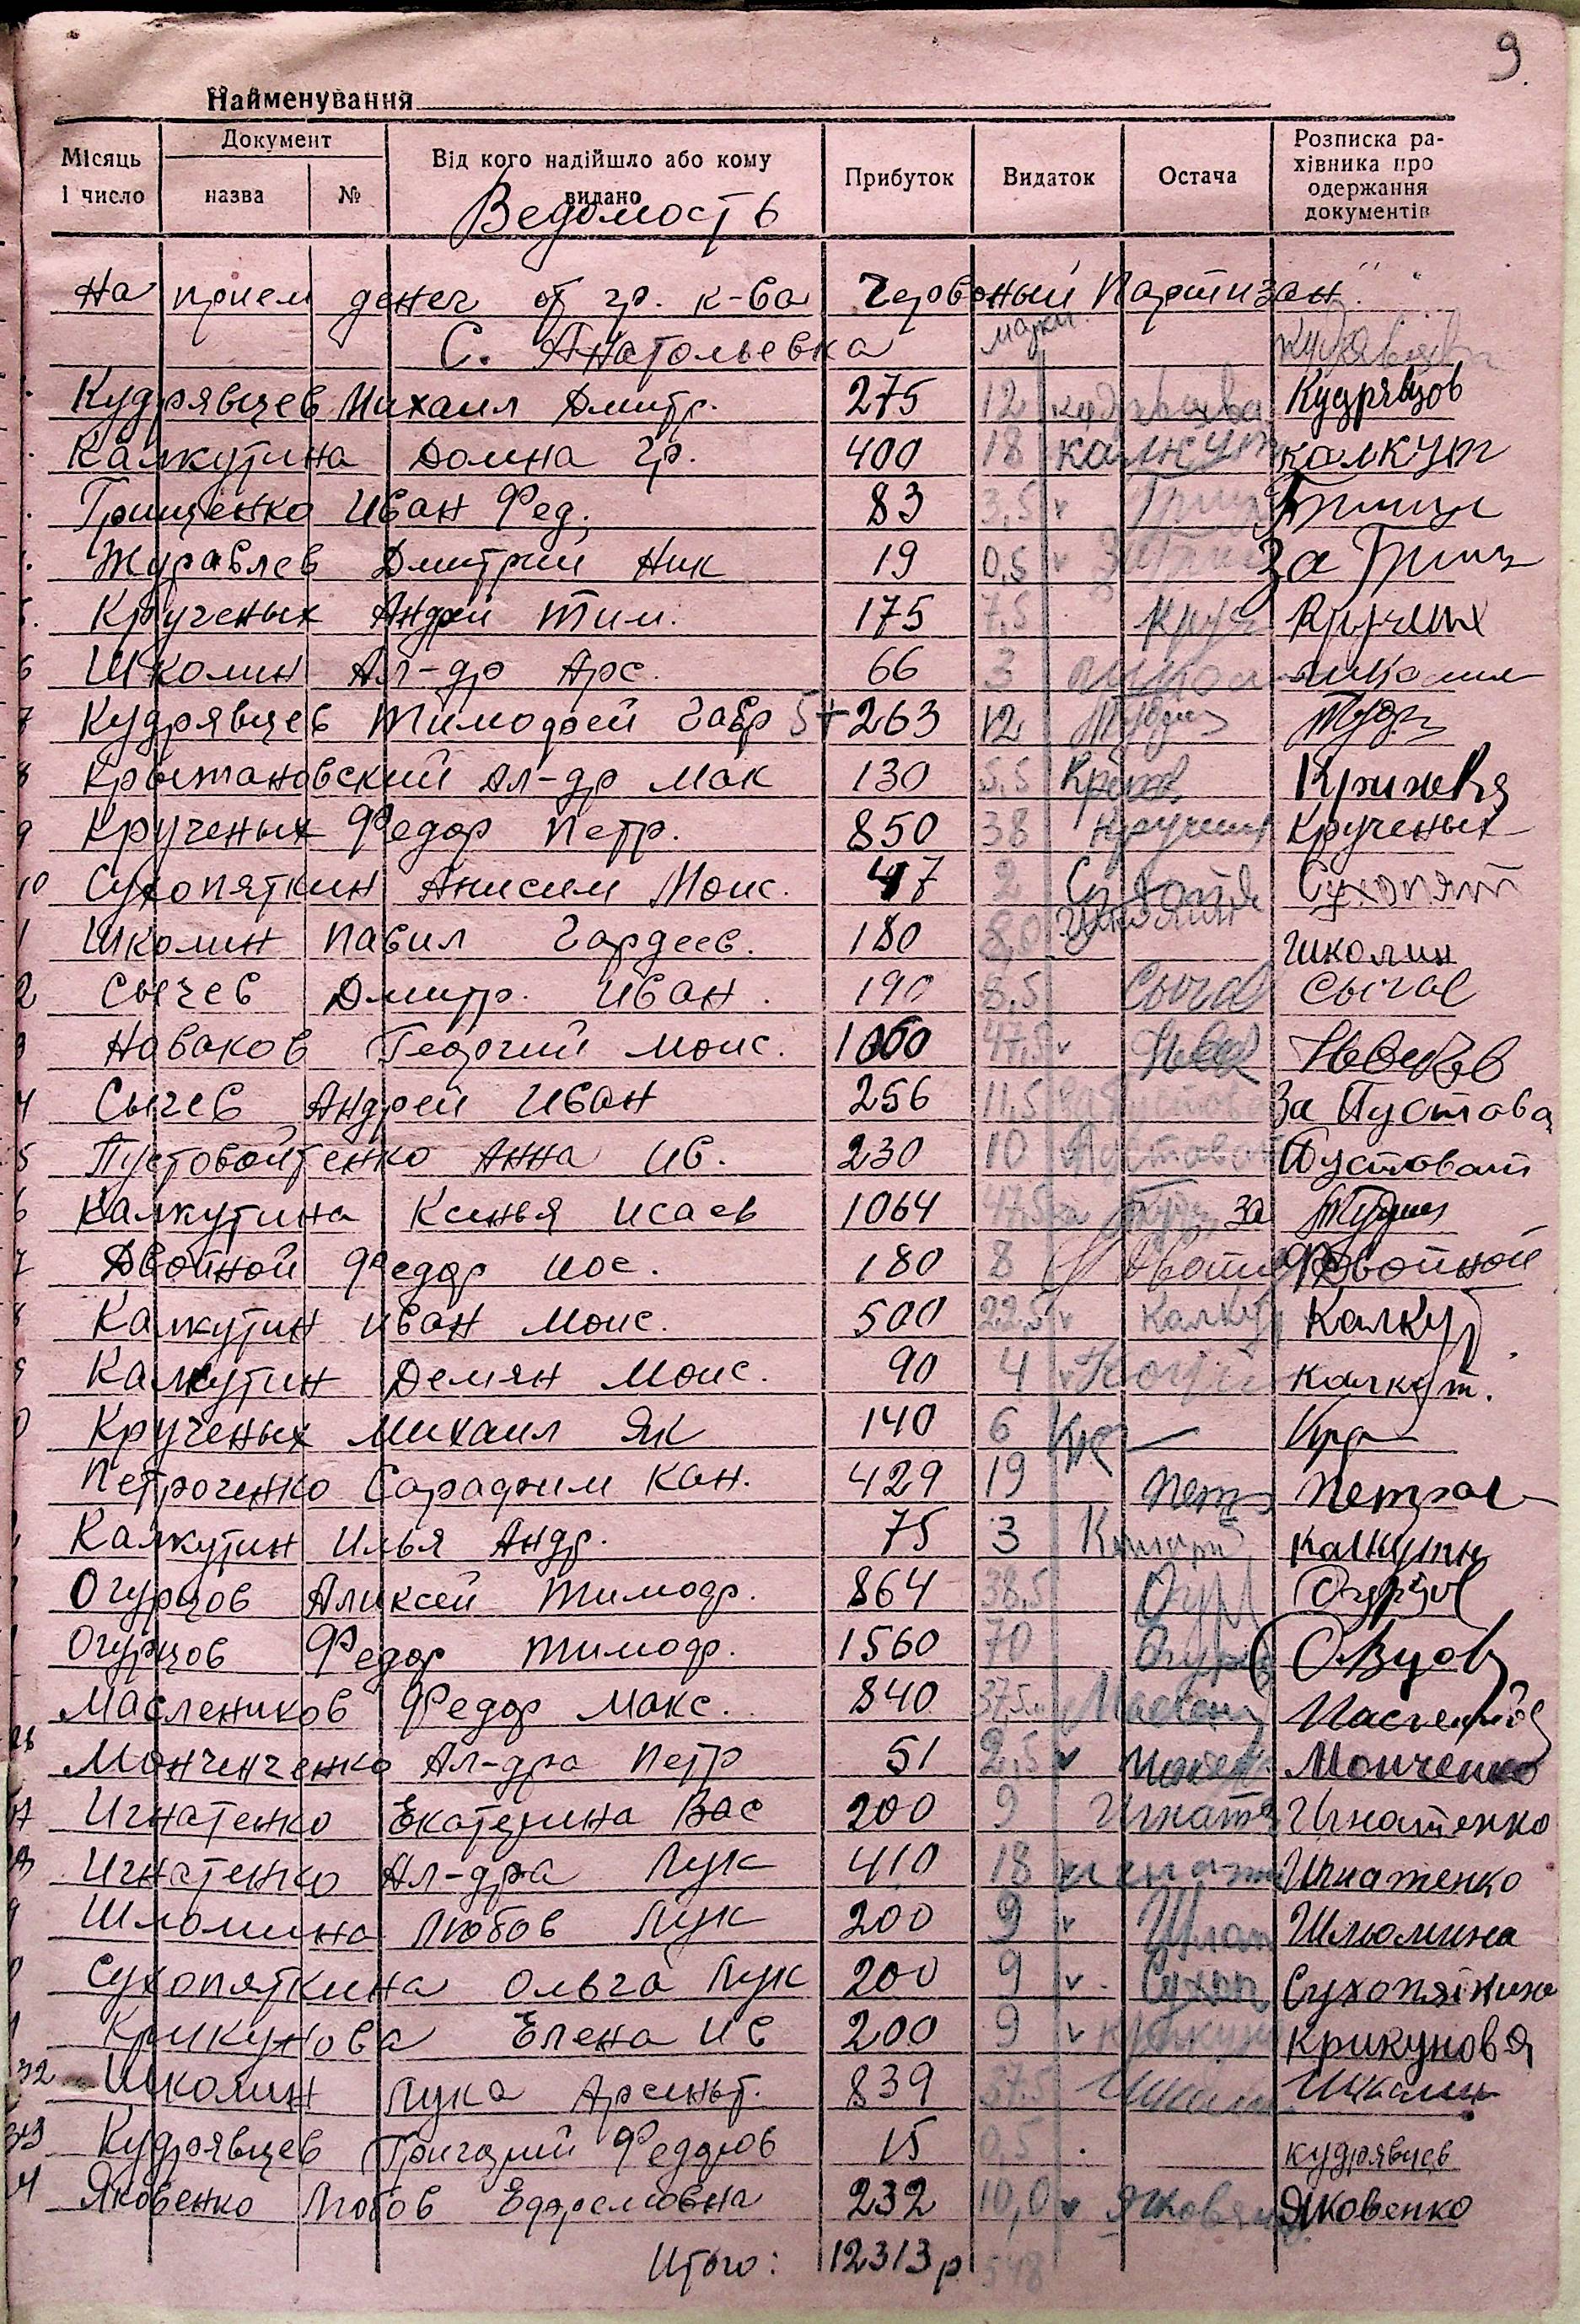 9.
Найменування
Місяць і число Документ назва № Від кого надійшло або кому видано Прибуток Видаток Остача Розписка рахівника про одержання документів
Ведомость
На прием денег от гр. к-ва Червоный Партизан"
С. Анатольевка марки
Кудрявцев Михаил Дмитр. 275 12 Кудрявцов
Калкутина Домна Гр. 400 18 калкут калкут
Грищенко Иван Фед. 83 3,5 v Грищ
Журавлев Дмитрий Ник 19 0,5 v За Грищ
5. Крученых Андрей Тим. 175 7,5 Круч Крученых
6 Школин Ал-др Арс. 66 3 Школ Школин
7 Кудрявцев Тимофей Гавр 5+263 12
8 Крыжановский Ал-др Мак 130 5,5 Крыж
9 Крученых Федор Петр. 850 38 Крученых Крученых
10 Сухопяткин Анисим Моис. 47 2 Сухопя Сухопят
1 Школин Павил Гордеев. 180 8,0 Школин Школин
2 Сычев Дмитр. Иван. 190 8,5 Сыче Сычов
3 Новаков Георгий Моис. 1050 47,5 v Новаков
4 Сычев Андрей Иван 256 11,5 За Пустова
5 Пустовойтенко Анна Ив. 230 10 Пустовойт
6 Калкутина Ксенья Исаев 1064 47,5 за за
7 Двойной Федор Иос. 180 8 Двойной
8 Калкутин Иван Моис. 500 22,5 v Калкут Калкут
9 Калкутин Демян Моис. 90 4 v Калкут.
0 Крученых Михаил Як 140 6 Кр
Петроченко Сарафим Кон. 429 19 Пет Петроч
Калкутин Илья Андр. 75 3 Калкутин
Огурцов Аликсей Тимоф. 864 38,5 Огур Огурцов
Огурцов Федор Тимоф. 1560 70 Огур
Маслеников Федор Макс. 840 37,5 Маслен Маслеников
26 Монченченко Ал-дра Петр 51 2,5 v Монченко
27 Игнатенко Екатерина Вас 200 9 Игнате Игнатенко
28 Игнатенко Ал-дра Лук 410 18 игнат Игнатенко
9 Шлюмина Любов Лук 200 9 v Шлюм Шлюмина
0 Сухопяткина Ольга Лук 200 9 v Сухоп Сухопяткина
1 Крикунова Елена Ив 200 9 v крикун Крикунова
32 Школин Лука Арсеньт. 839 37.5 Школин Школин
33 Кудрявцев Григорий Федоров 15 0,5 Кудрявцев
4 Яковенко Любов Ефремовна 232 10,0 v Яковен Яковенко
Итого: 12313 р 548